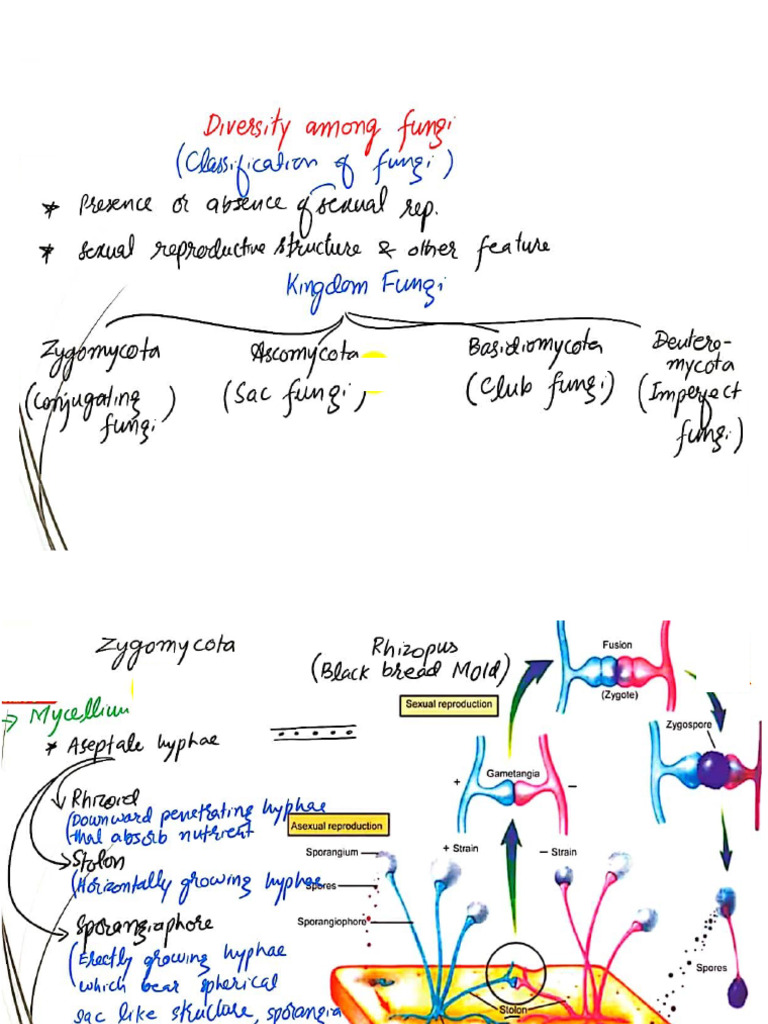 Diversity among fungi
(Classification of fungi)
* Presence or absence of sexual rep.
* Sexual reproductive structure & other feature
Kingdom Fungi
Zygomycota
(Conjugating
fungi)
Ascomycota
(Sac fungi)
Basidiomycota
(Club fungi)
Deutero-
mycota
(Imperfect
fungi)
Zygomycota
Rhizopus
(Black bread Mold)
→ Mycellium
* Aseptate hyphae
Rhizoid
(Downward penetrating hyphae
that absorb nutrient
Stolon
(Horizontally growing hyphae
Sporangiaphore
(Erectly growing hyphae
which bear spherical
sac like structure, sporangia
Sexual reproduction
Fusion
(Zygote)
Zygospore
Gametangia
+
−
Asexual reproduction
Sporangium
+ Strain
− Strain
Spores
Sporangiophore
Stolon
Spores